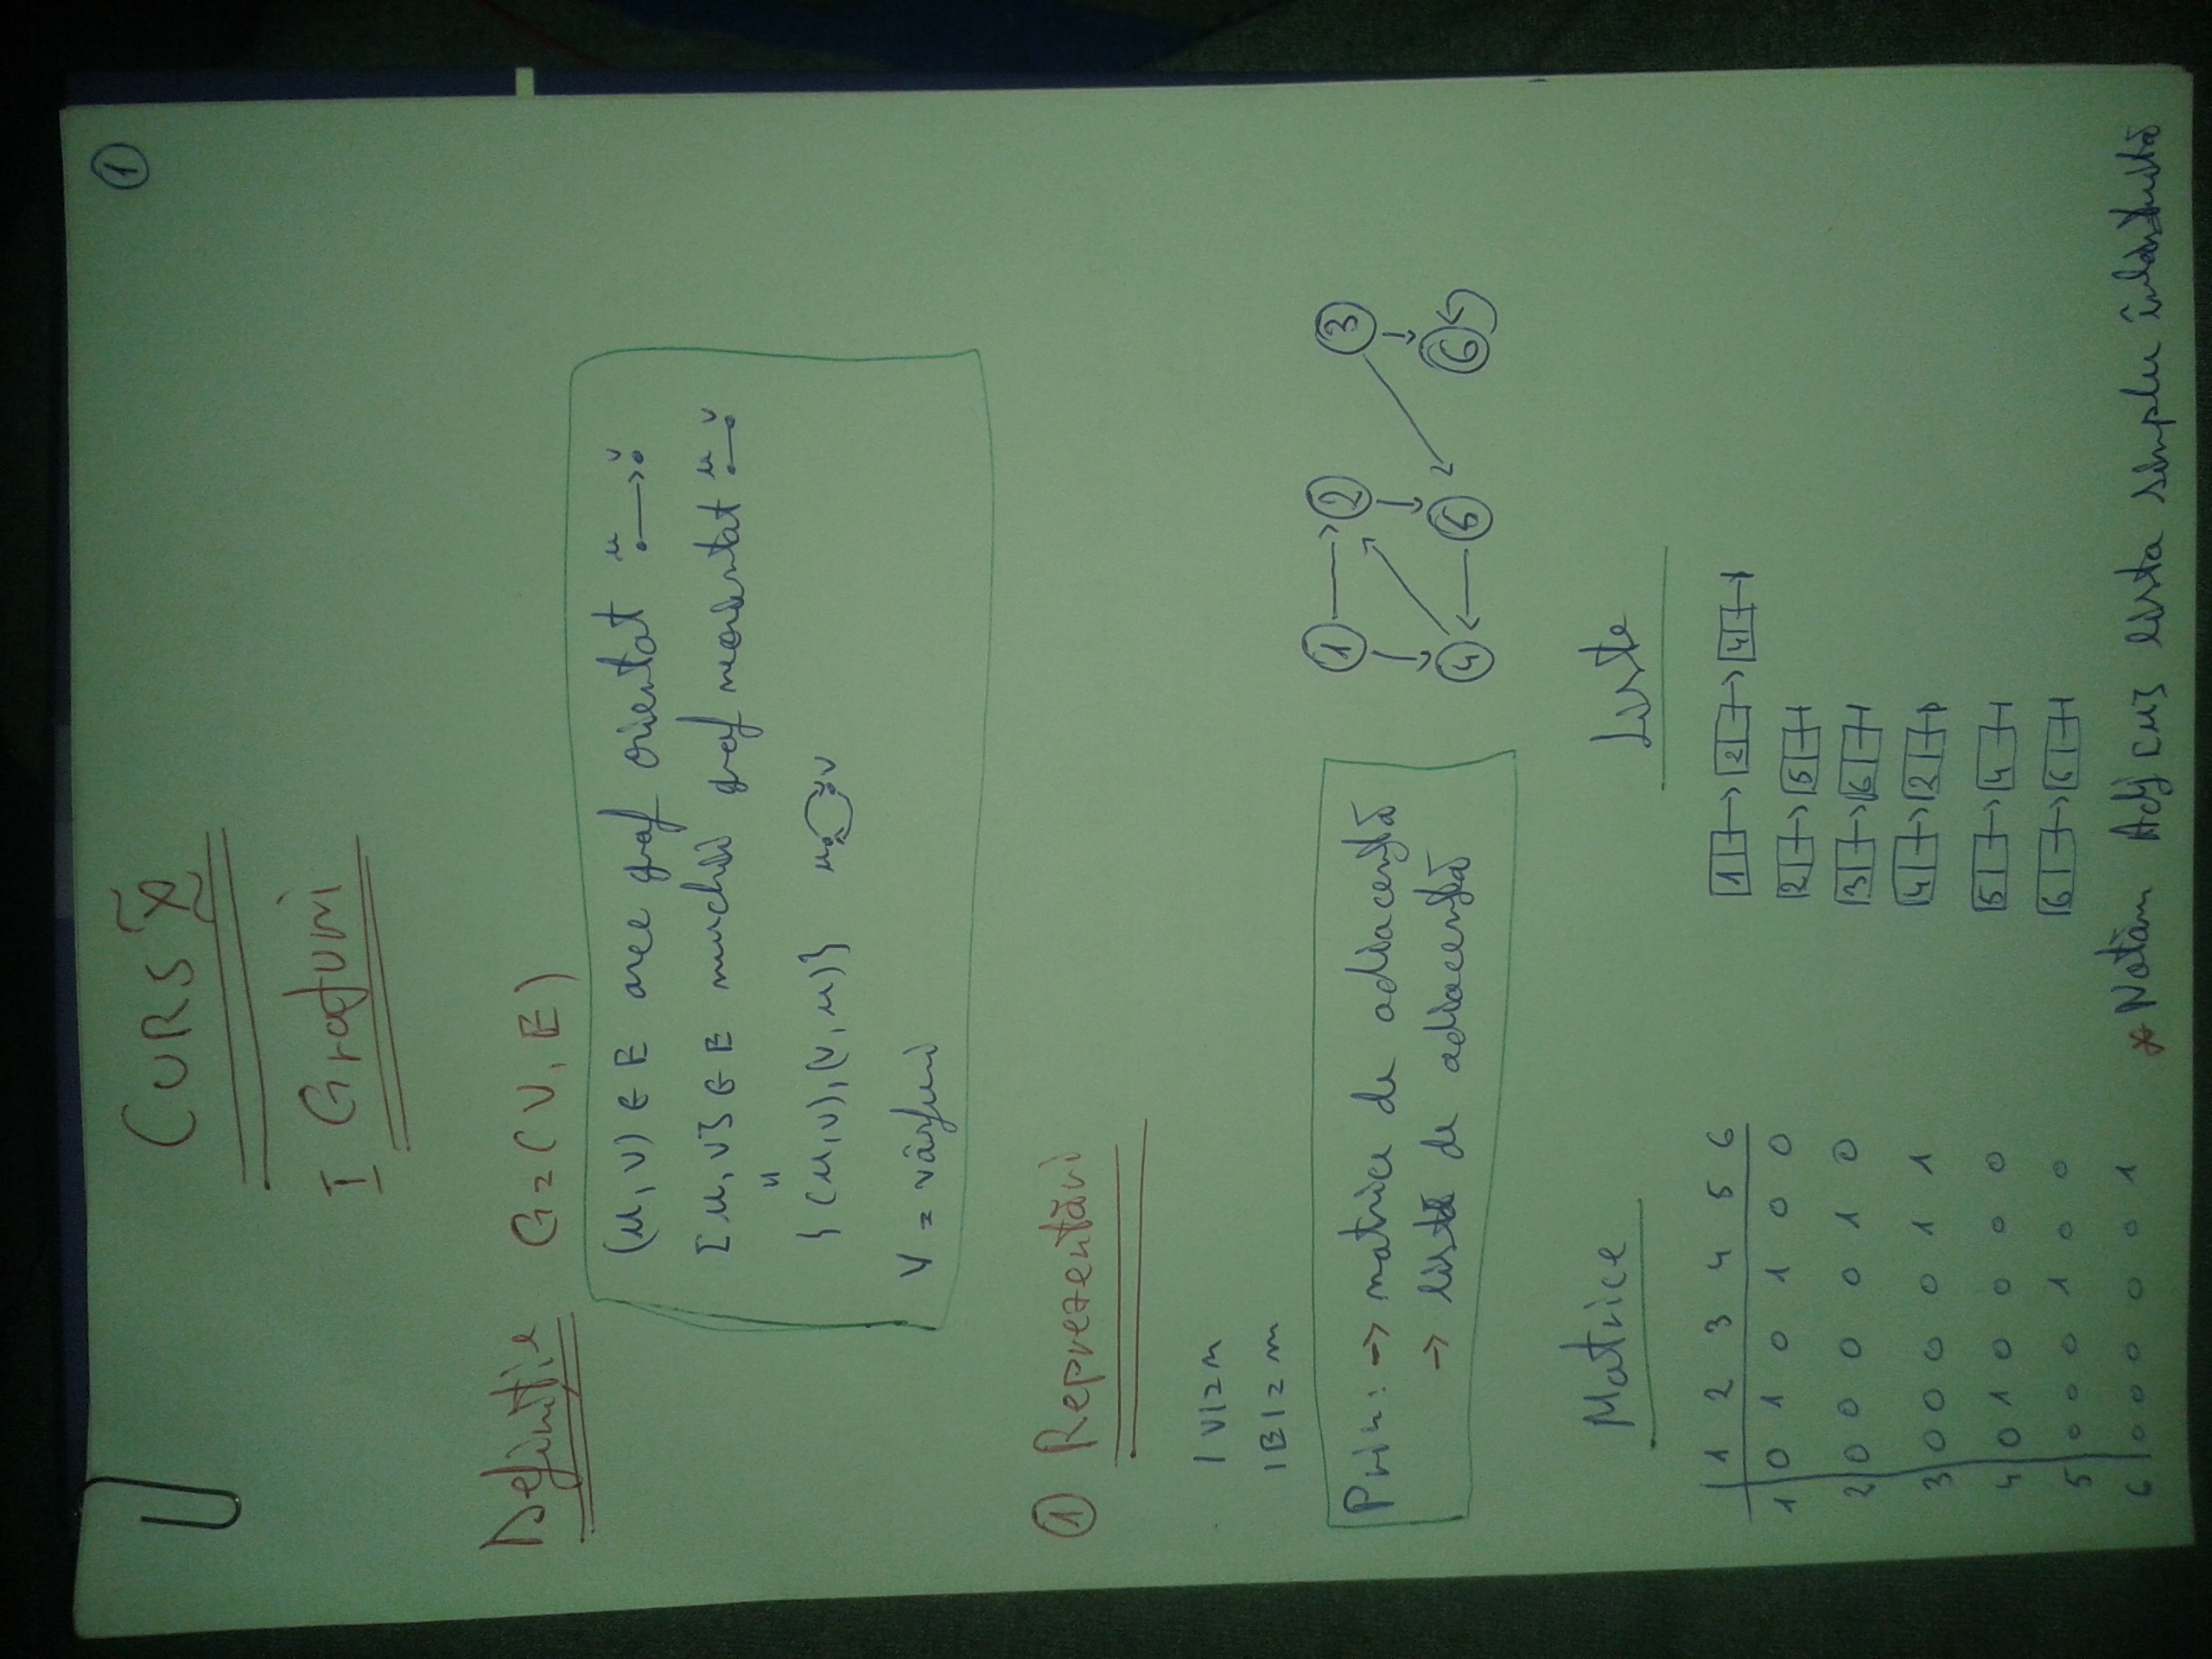 1
CURS X
I Grafuri
Definiție G=(V, E)
(u, v) ∈ E arce graf orientat u v
[u, v] ∈ E muchii graf neorientat u v
"
{(u,v),(v,u)} u v
V = vârfuri
1 Reprezentări
|V|=n
|E|=m
Prin: → matrice de adiacență
→ listă de adiacență
1 2 3
4 5 6
Matrice Liste
1 2 3 4 5 6
1 0 1 0 1 0 0
2 0 0 0 0 1 0
3 0 0 0 0 1 1
4 0 1 0 0 0 0
5 0 0 0 1 0 0
6 0 0 0 0 0 1
1 → 2 → 4
2 → 5
3 → 6
4 → 2
5 → 4
6 → 6
* Notăm Adj[u] lista simplu înlănțuită